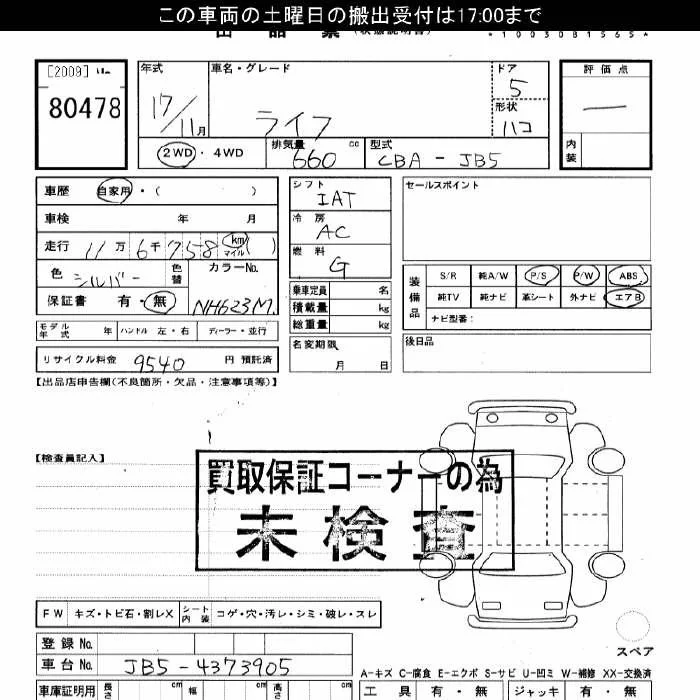 この車両の土曜日の搬出受付は17:00まで
出品票 (状態説明書) *1003081565*
[2009]
80478
年式 17/11月
車名・グレード ライフ
ドア 5
形状 ハコ
評価点 —
内装
2WD・4WD
排気量 660 cc
型式 CBA-JB5
車歴 自家用・( )
車検 年 月
走行 11万6千758 km マイル ( )
色 シルバー 色替
カラーNo. NH623M.
保証書 有・無
モデル年式 年 ハンドル 左・右 ディーラー・並行
リサイクル料金 9540 円 預託済
シフト IAT
冷房 AC
燃料 G
乗車定員 名
積載量 kg
総重量 kg
名変期限 月 日
セールスポイント
装備品
S/R 純A/W P/S P/W ABS
純TV 純ナビ 革シート 外ナビ エアB
ナビ型番:
後日品
【出品店申告欄(不良箇所・欠品・注意事項等)】
【検査員記入】
買取保証コーナーの為
未検査
FW キズ・トビ石・割レX シート内装 コゲ・穴・汚レ・シミ・破レ・スレ
スペア
登録No.
車台No. JB5-4373905
A-キズ C-腐食 E-エクボ S-サビ U-凹ミ W-補修 XX-交換済
車庫証明用 長さ cm 幅 cm 高さ cm
工具 有・無 ジャッキ 有・無